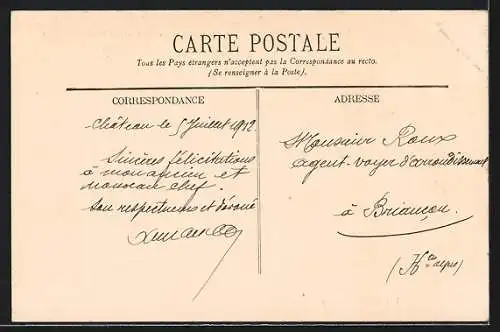 CARTE POSTALE
Tous les Pays étrangers n'acceptent pas la Correspondance au recto.
(Se renseigner à la Poste).
CORRESPONDANCE
Château le 5 Juillet 1912.
Sincères félicitations
à mon ancien et
nouveau chef.
Son respectueux et dévoué
ADRESSE
Monsieur Roux
agent-voyer d'arrondissement
à Briançon.
(Htes alpes)